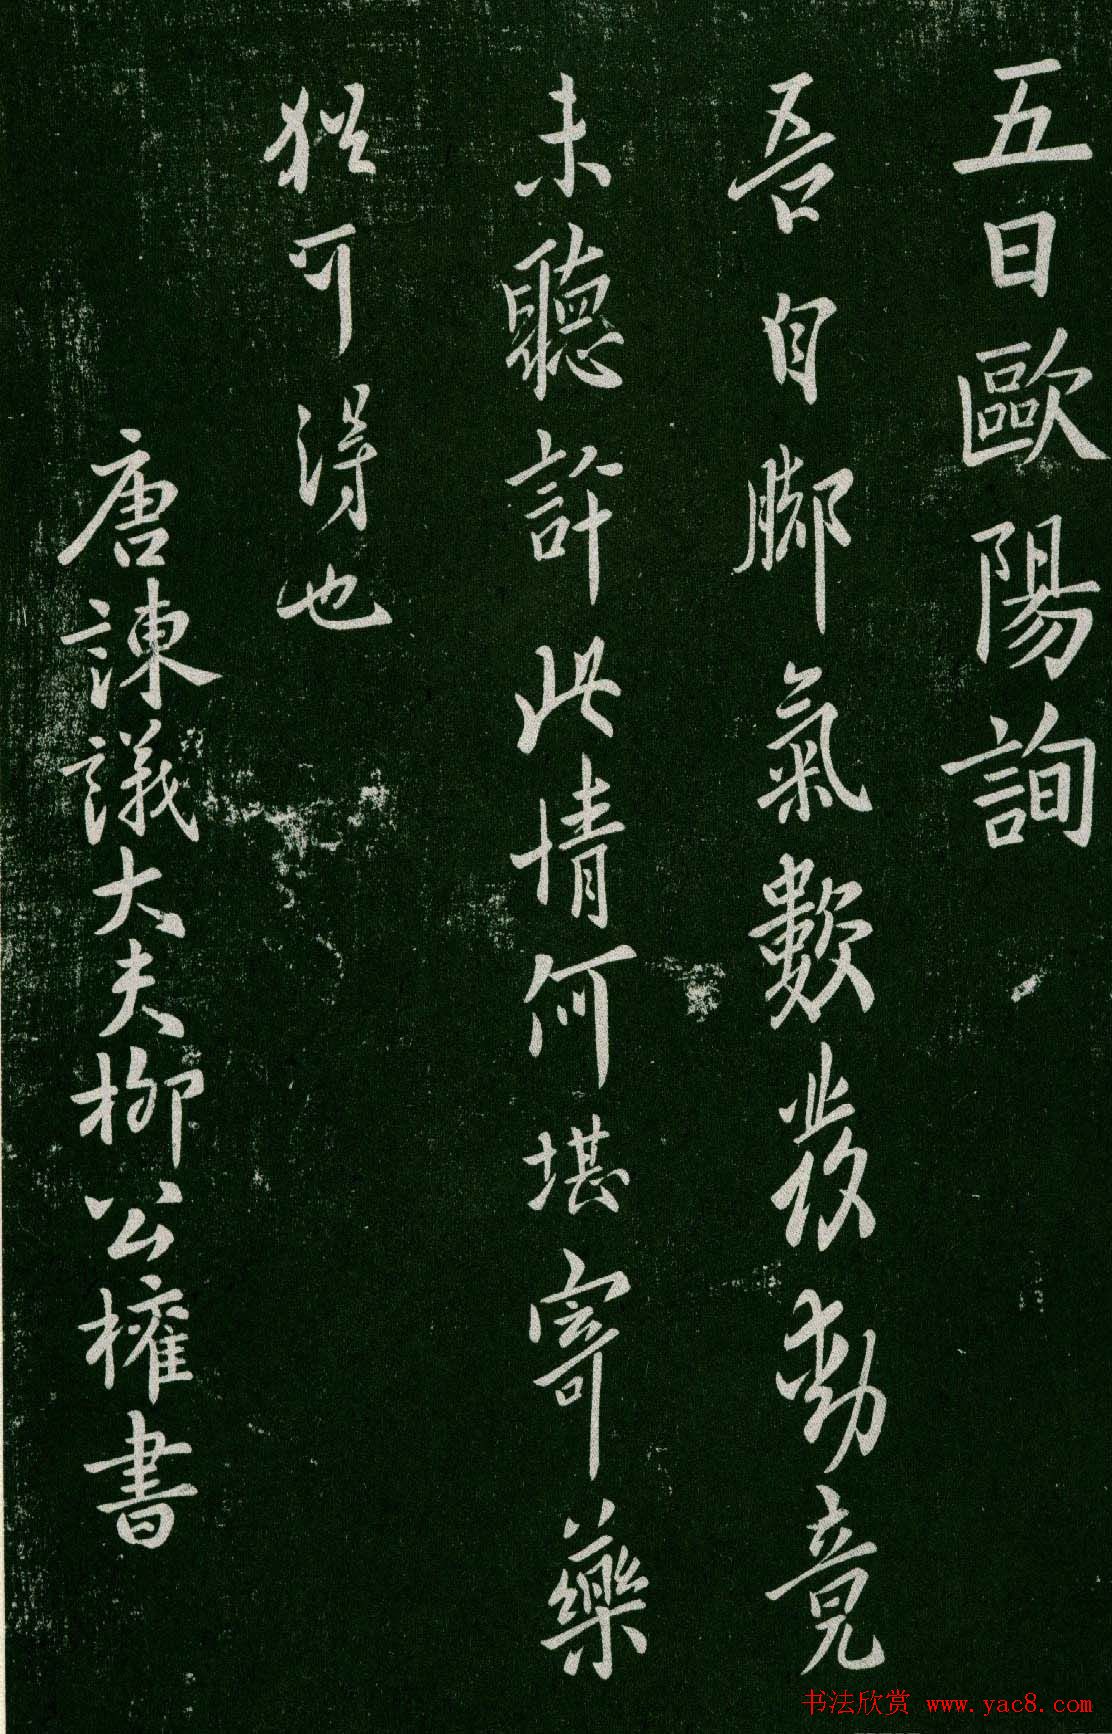 五日歐陽詢
吾自脚氣數發動竟
未聽許此情何堪寄藥
猶可得也
唐諫議大夫柳公權書
书法欣赏 www.yac8.com